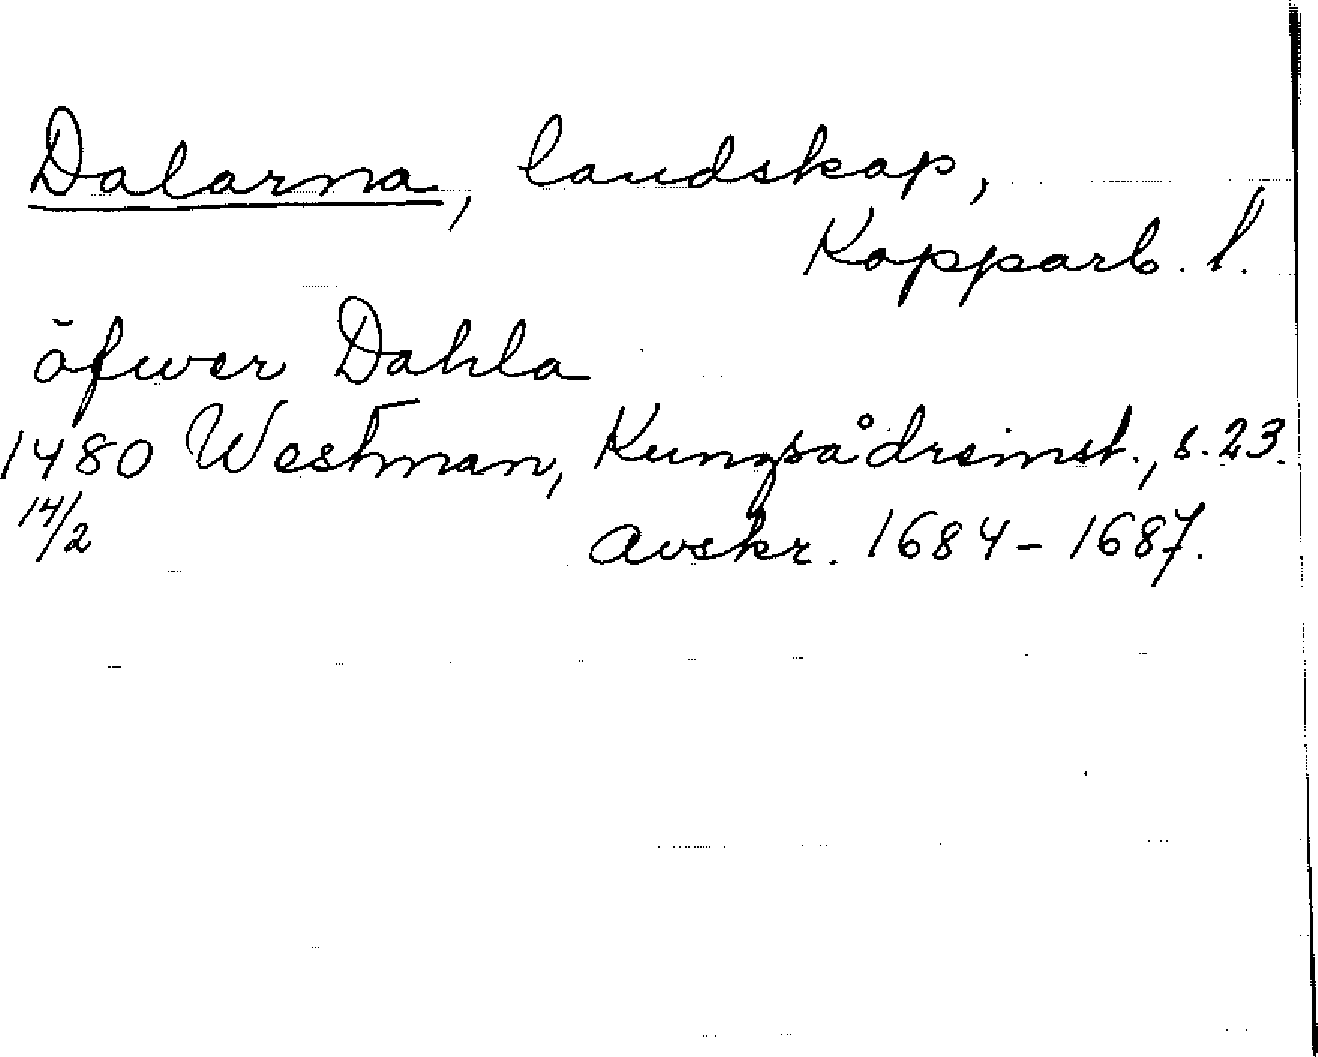 Dalarna, landskap,
Kopparb. l.
öfwer Dahla
1480 Westman, Kungsådreinst., s. 23.
14/2 Avskr. 1684-1687.